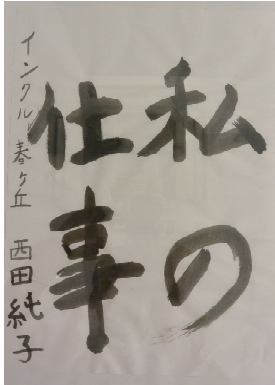 私の
仕事
インクル春ヶ丘 西田純子